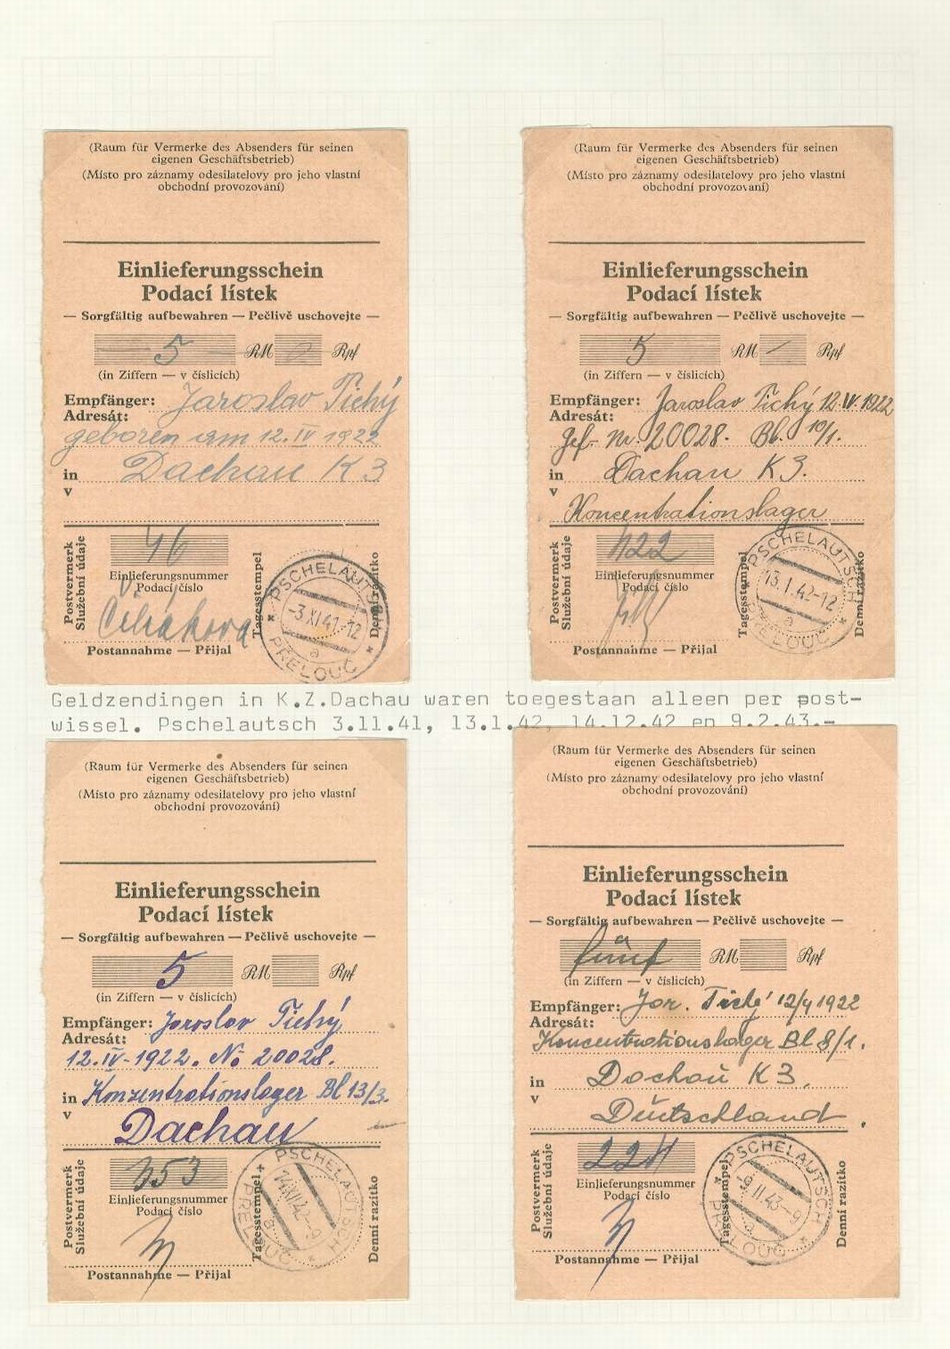 (Raum für Vermerke des Absenders für seinen
eigenen Geschäftsbetrieb)
(Místo pro záznamy odesilatelovy pro jeho vlastní
obchodní provozování)
Einlieferungsschein
Podací lístek
— Sorgfältig aufbewahren — Pečlivě uschovejte —
5 RM Rpf
(in Ziffern — v číslicích)
Empfänger: Jaroslav Tichý
Adresát:
geboren am 12. IV 1922
in Dachau K 3
v
Postvermerk
Služební údaje
46
Einlieferungsnummer
Podací číslo
Tagesstempel
Denní razítko
PSCHELAUTSCH
-3.XI.41.-12
a
PŘELOUČ
Postannahme — Přijal
(Raum für Vermerke des Absenders für seinen
eigenen Geschäftsbetrieb)
(Místo pro záznamy odesilatelovy pro jeho vlastní
obchodní provozování)
Einlieferungsschein
Podací lístek
— Sorgfältig aufbewahren — Pečlivě uschovejte —
5 RM — Rpf
(in Ziffern — v číslicích)
Empfänger: Jaroslav Tichý 12.IV.1922
Adresát:
Gef- Nr. 20028. Bl. 10/1.
in Dachau K 3.
v
Koncentrationslager
Postvermerk
Služební údaje
422
Einlieferungsnummer
Podací číslo
Tagesstempel
Denní razítko
PSCHELAUTSCH
13.1.42-12
a
PŘELOUČ
Postannahme — Přijal
Geldzendingen in K.Z.Dachau waren toegestaan alleen per post-
wissel. Pschelautsch 3.11.41, 13.1.42, 14.12.42 en 9.2.43.-
(Raum für Vermerke des Absenders für seinen
eigenen Geschäftsbetrieb)
(Místo pro záznamy odesilatelovy pro jeho vlastní
obchodní provozování)
Einlieferungsschein
Podací lístek
— Sorgfältig aufbewahren — Pečlivě uschovejte —
5 RM Rpf
(in Ziffern — v číslicích)
Empfänger: Jaroslav Tichý
Adresát:
12. IV. 1922. No 20028.
in Konzentrationslager Bl 13/3.
v
Dachau
Postvermerk
Služební údaje
353
Einlieferungsnummer
Podací číslo
Tagesstempel
Denní razítko
PSCHELAUTSCH
14.XII.42-9
a
PŘELOUČ
Postannahme — Přijal
(Raum für Vermerke des Absenders für seinen
eigenen Geschäftsbetrieb)
(Místo pro záznamy odesilatelovy pro jeho vlastní
obchodní provozování)
Einlieferungsschein
Podací lístek
— Sorgfältig aufbewahren — Pečlivě uschovejte —
fünf RM Rpf
(in Ziffern — v číslicích)
Empfänger: Jar. Tichý 12/4 1922
Adresát:
Koncentrationslager Bl 8/1.
in Dachau K 3.
v
Deutschland.
Postvermerk
Služební údaje
224
Einlieferungsnummer
Podací číslo
Tagesstempel
Denní razítko
PSCHELAUTSCH
-9.II.43-9
a
PŘELOUČ
Postannahme — Přijal